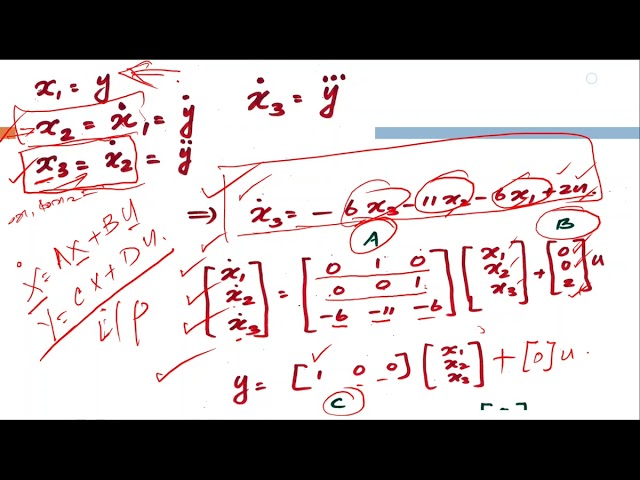 x₁ = y
ẋ₃ = y⃛
x₂ = ẋ₁ = ẏ
x₃ = ẋ₂ = ÿ
⇒ ẋ₃ = - 6x₃ - 11x₂ - 6x₁ + 2u
A B
Ẋ = AX + BU
Y = CX + DU.
i/p
[ẋ₁ ẋ₂ ẋ₃] = [0 1 0 0 0 1 -6 -11 -6] [x₁ x₂ x₃] + [0 0 2] u
y = [1 0 0] [x₁ x₂ x₃] + [0]u.
C